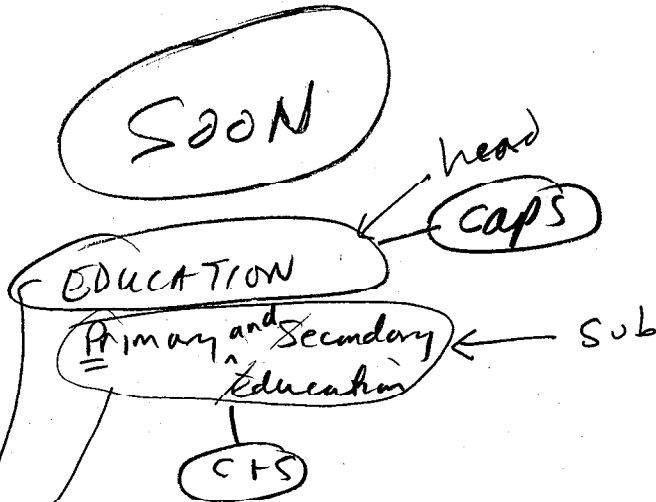 SOON
head
caps
EDUCATION
Primary and Secondary
Education
Sub
C+S